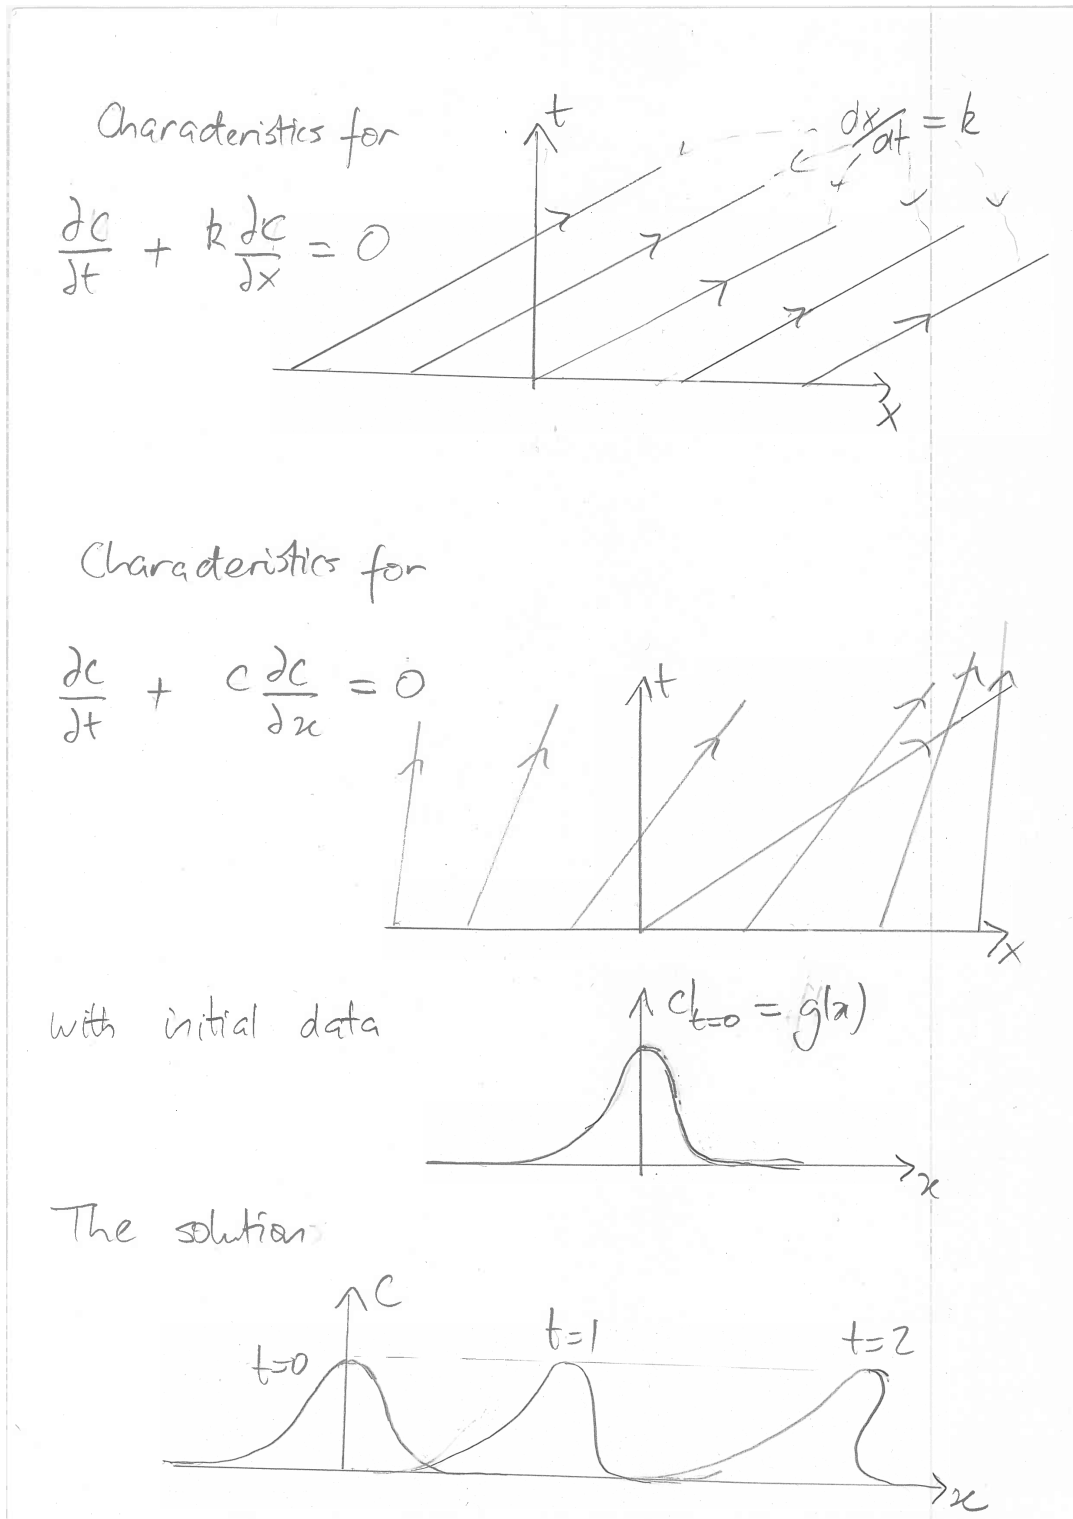 Characteristics for
t
dx/dt = k
∂c/∂t + k ∂c/∂x = 0
x
Characteristics for
∂c/∂t + c ∂c/∂x = 0
t
x
with initial data
c|t=0 = g(x)
x
The solution
c
t=0
t=1
t=2
x